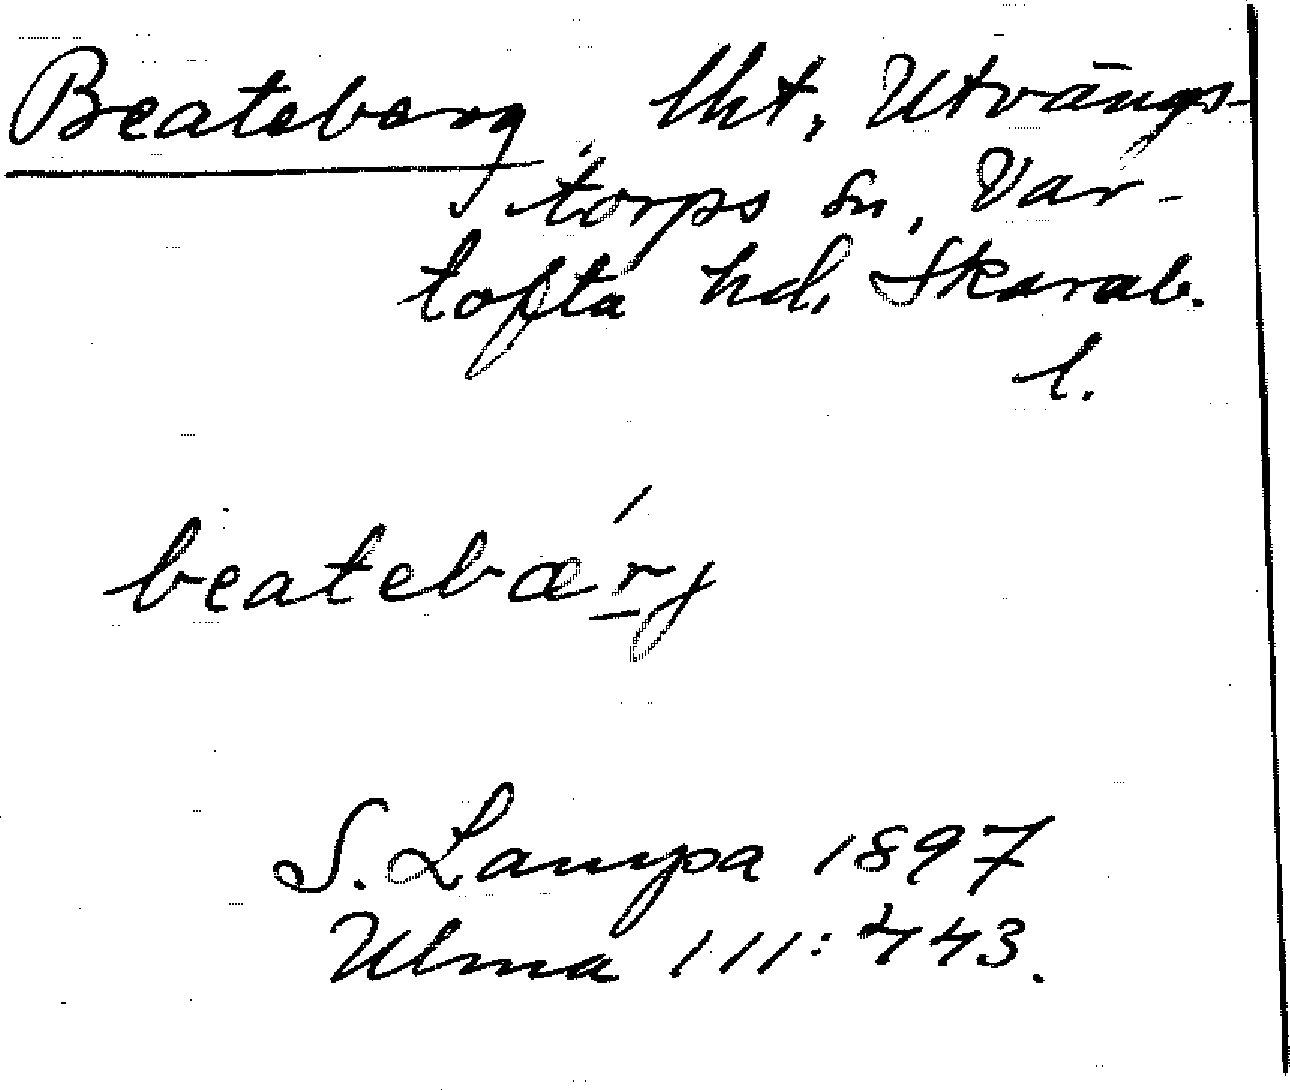 Beateberg, lht, Utvängs-
torps sn, Var-
tofta hd, Skarab.
l.
beatebærj
S. Lampa 1897
Ulma 111:443.